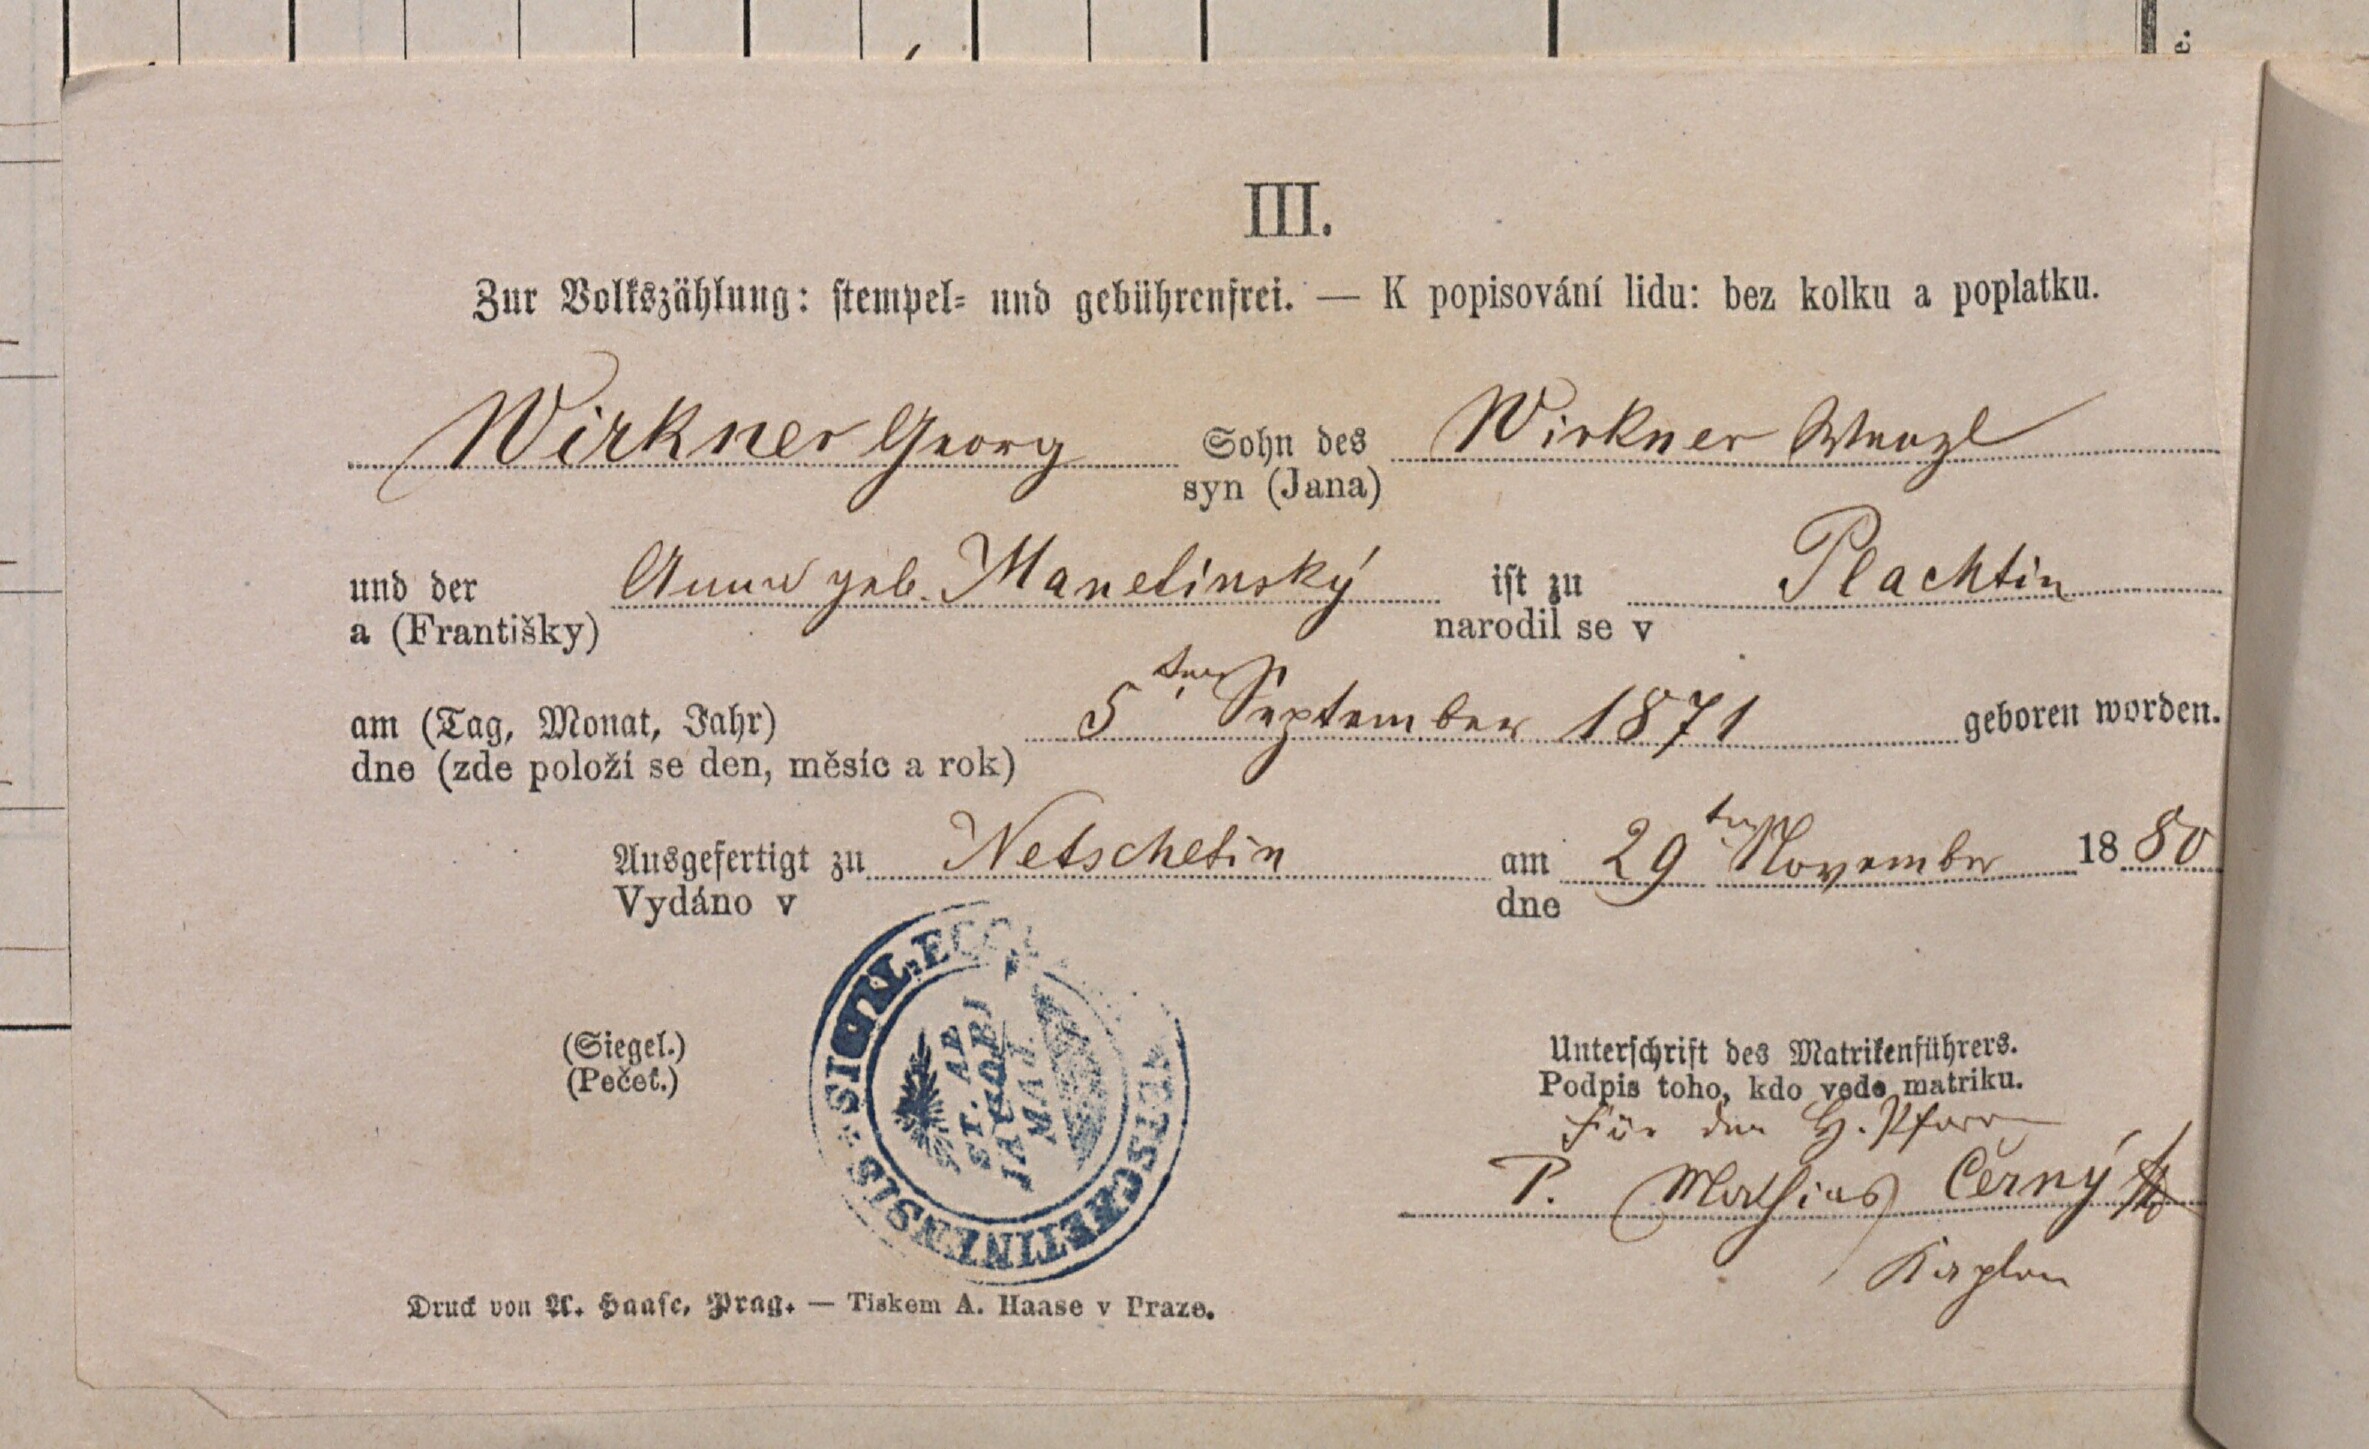 III.
Zur Volkszählung: stempel- und gebührenfrei. — K popisování lidu: bez kolku a poplatku.
Wirkner Georg Sohn des Wirkner Wenzl
syn (Jana)
und der Anna geb. Manetinský ist zu Plachtin
a (Františky) narodil se v
am (Tag, Monat, Jahr) 5ten September 1871 geboren worden.
dne (zde položí se den, měsíc a rok)
Ausgefertigt zu Netschetin am 29ten November 1880
Vydáno v dne
SIGIL. ECCL. NETSCHETINENSIS
ST. AP. JACOBI MAJ.
(Siegel.)
(Pečeť.)
Unterschrift des Matrikenführers.
Podpis toho, kdo vede matriku.
Für den H. Pfarr
P. Mathias Černý
Kaplan
Druck von A. Haase, Prag. — Tiskem A. Haase v Praze.